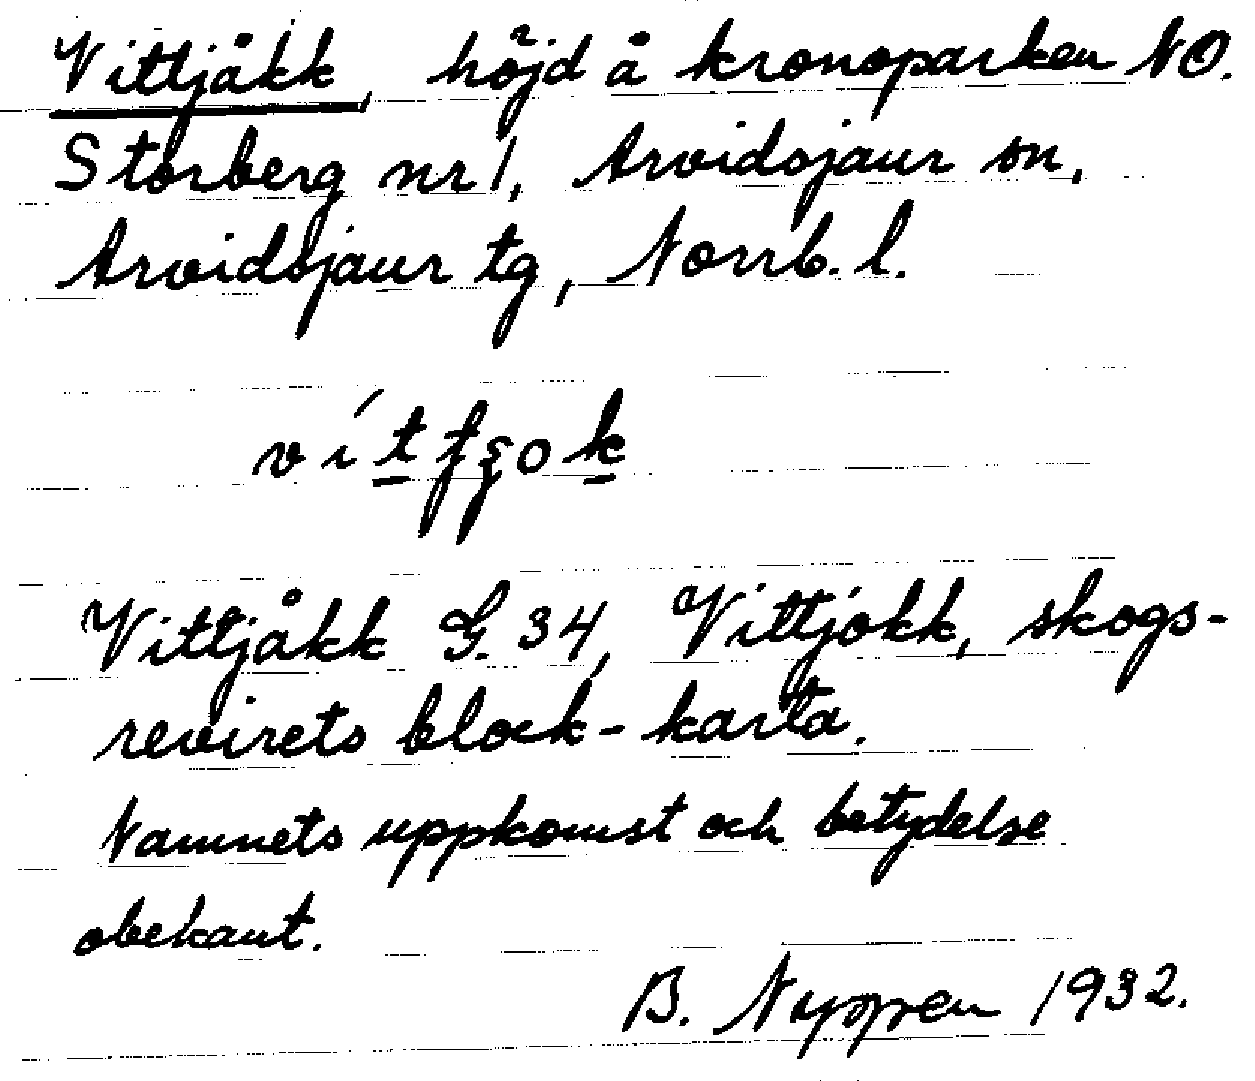 Vittjåkk, höjd å kronoparken NO.
Storberg nr 1, Arvidsjaur sn,
Arvidsjaur tg, Norrb. l.
Vittjåkk G. 34, Vittjokk, skogs-
revirets block-karta.
Namnets uppkomst och betydelse
obekant.
B. Nyppen 1932.